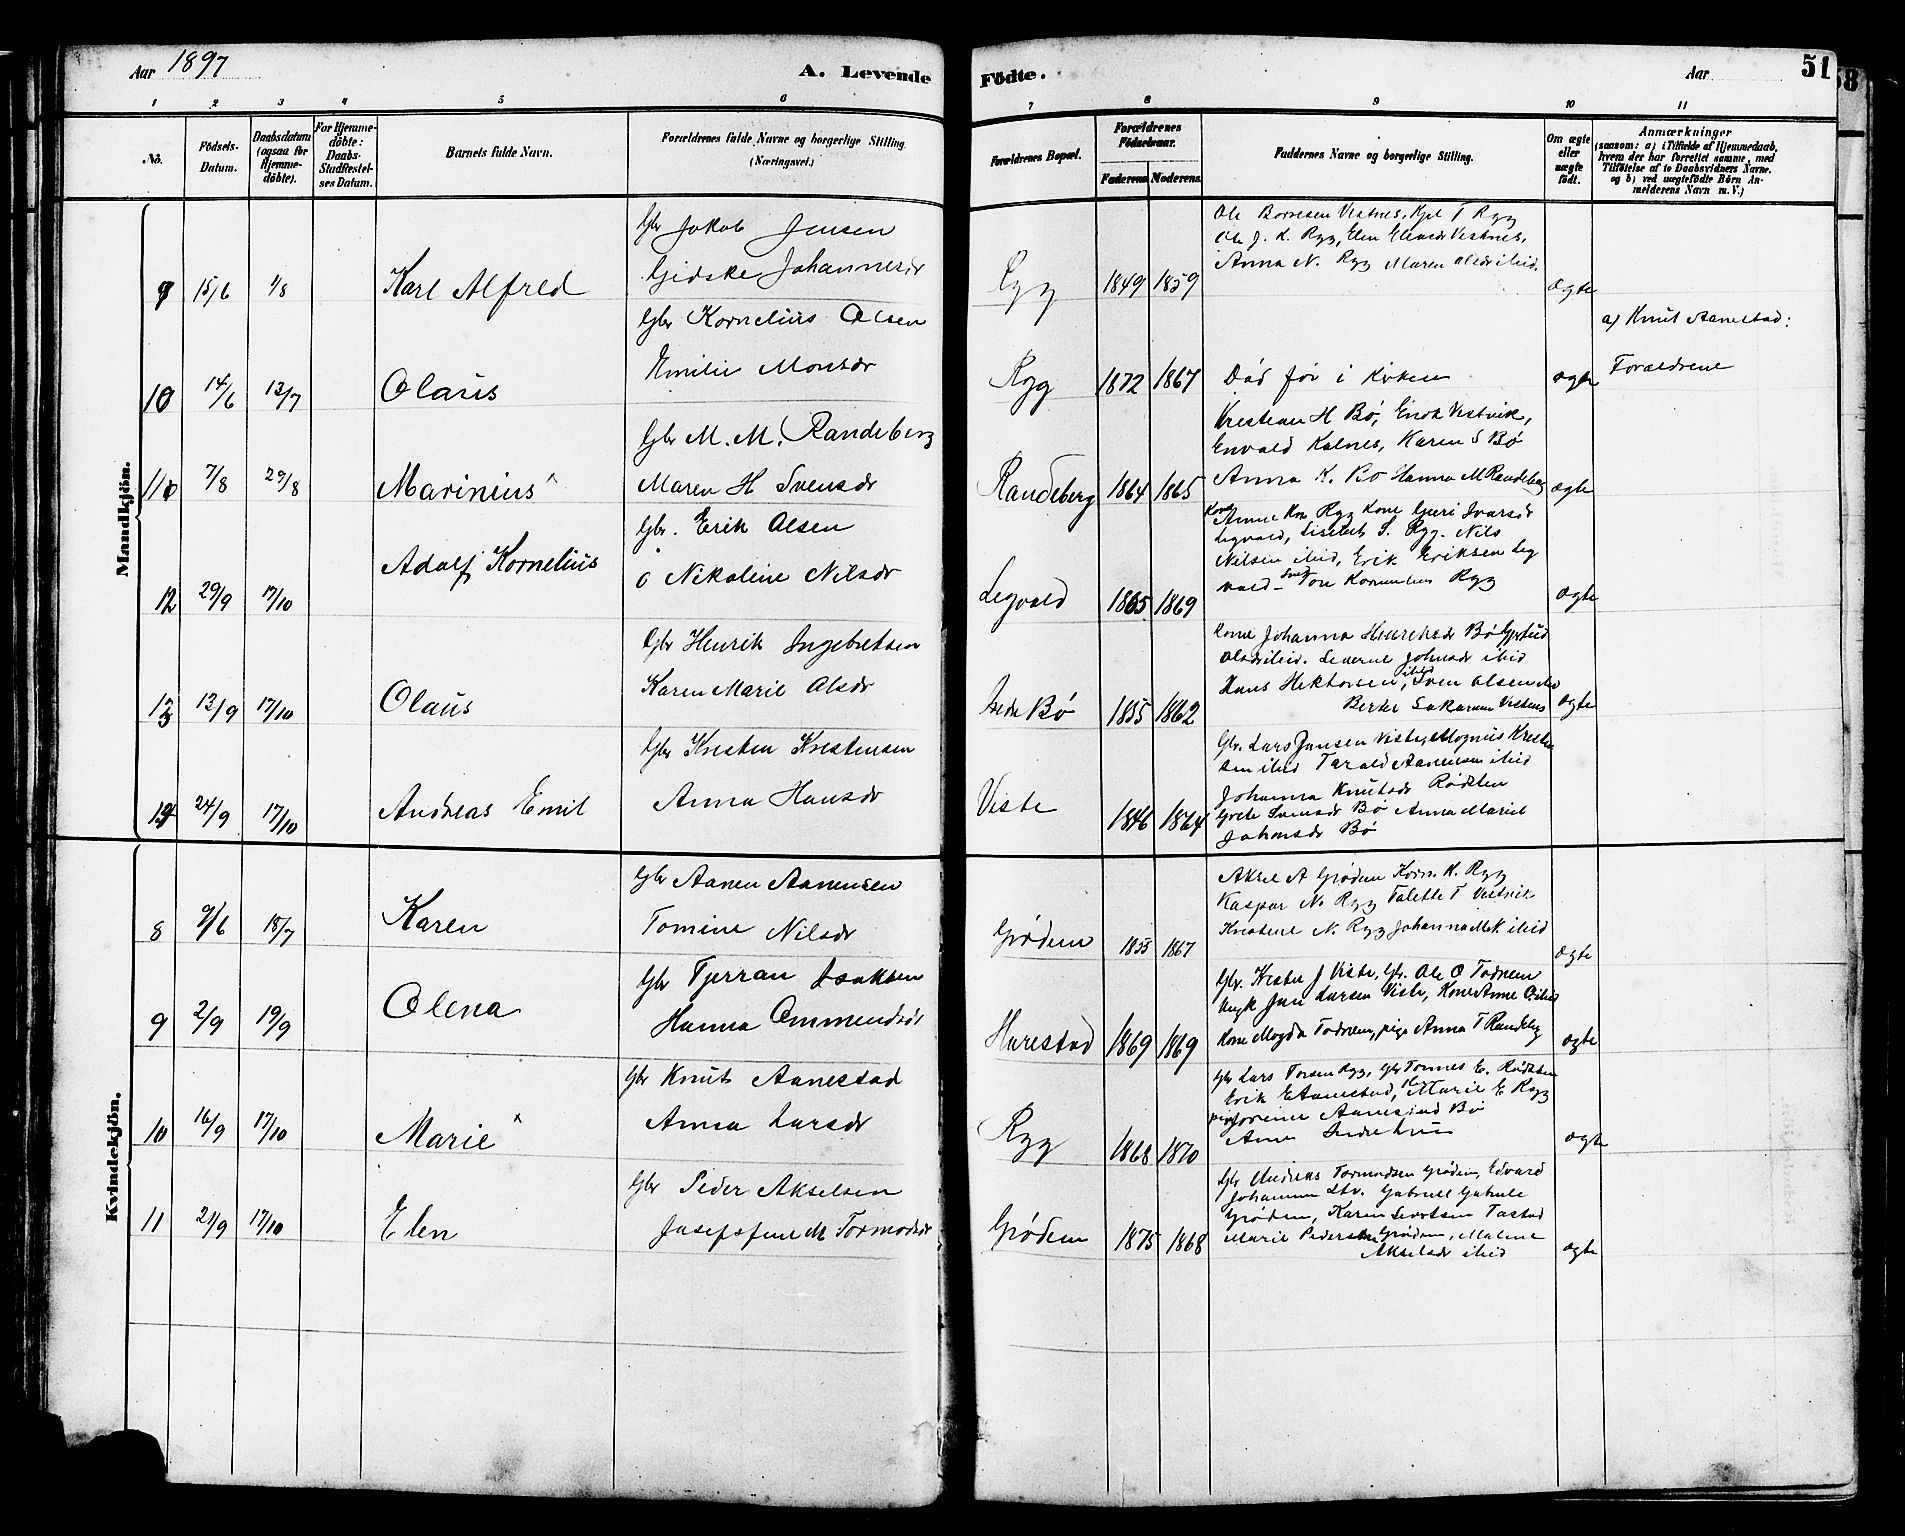 Aar 1897
A. Levende
Födte.
Aar
51
58
1 2 3 4 5 6 7 8 9 10 11
No.
Födsels-Datum.
Daabsdatum (ogsaa for Hjemme-döbte).
For Hjemme-döbte: Daabs-Stadfestel-ses Datum.
Barnets fulde Navn.
Forældrenes fulde Navne og borgerlige Stilling.
(Næringsvei.)
Forældrenes Bopæl.
Forældrenes Födselsaar.
Faderens Moderens
Faddernes Navne og borgerlige Stilling.
Om ægte eller uægte födt.
Anmærkninger
(saasom: a) i Tilfælde af Hjemmedaab,
hvem der har forrettet samme, med
Tilföielse af to Daabsvidners Navne.
og b) ved uægtefödte Börn An-
melderens Navn m. V.)
Mandkjön.
9 15/6 1/8 Karl Alfred
Gbr Jakob Jensen
Gidske Johannesdr
Ryg 1849 1859
Ole Bornesen Vestnes, Kjel T Ryg
Ole J. K. Ryg, Elen Vestnes,
Anna N. Ryg Maren Olsdr ibid.
ægte
10 14/6 13/7 Olaus
Gbr Kornelius Olsen
Emilie Monsdr
Ryg 1872 1867
Död för i Kirken
ægte
a) Knut Aanestad:
Forældrene
11 7/8 29/8 Marinius
Gbr M. M. Randeberg
Maren H Svensdr
Randeberg 1864 1865
Krestian H Bö, Enok Vestvik,
Envald Kalnes, Karen S Bö
Anna K. Bö Hanna M Randeberg
ægte
12 29/9 17/10 Adolf Kornelius
Gbr. Erik Olsen
o Nikoline Nilsdr
Legvold 1865 1869
Kone Anne Ryg Kone Guri Ivarsdr
Legvold, Liselbet S. Ryg. Nils
Nilsen ibid, Erik Eriksen Leg
vold - Ryg
ægte
13 13/9 17/10 Olaus
Gbr Henrik Ingebretsen
Karen Marie Olsdr
Indre Bö 1855 1862
Kone Johanna Bö
Olsdr ibid. Severine Johnsdr ibid
Hans Hektorsen, ibid Sven Olsen ibid
ægte
14 24/9 17/10 Andreas Emil
Gbr Kresten Krestensen
Anna Hansdr
Viste 1846 1864
Gbr. Lars Jansen Viste, Mognus Kresten
sen ibid Tarald Aanensen ibid
Johanna Knutsdr Rödsten
Grete Svensdr Bö Anna Marie
Johnsdr Bö
Kvindekjön.
8 9/6 18/7 Karen
Gbr Aanen Aanensen
Tomine Nilsdr
Grödem 1855 1867
Aksel A Grödem Korn. K. Ryg
Kaspar N. Ryg Talette T Vestvik
Kristene N. Ryg Johanna ibid
ægte
9 2/9 19/9 Olena
Gbr Tjerran Isaksen
Hanna Ommundsdr
Harestad 1869 1869
Gbr. Krester J Viste, Gbr. Ole O Todnem
Ungk Jan Larsen Viste, Kone Anne ibid
Kone Magda Todnem, pige Anna T Randebg
ægte
10 16/9 17/10 Marie
Gbr Knut Aanestad
Anna Larsdr
Ryg 1868 1870
Gbr Lars Torsen Ryg, Gbr Tonnes E. Rödsten
Erik E Aanestad, Marie E Ryg
Bö
Anne
ægte
11 21/9 17/10 Elen
Gbr Peder Akselsen
Josefine M Tormodsdr
Grödem 1875 1868
Gbr Andreas Tormodsen Grödem, Edvard
Gabriel
Grödem, Karen Tastad
Marie Pedersen Grödem, Malene
Akselsdr ibid
ægte